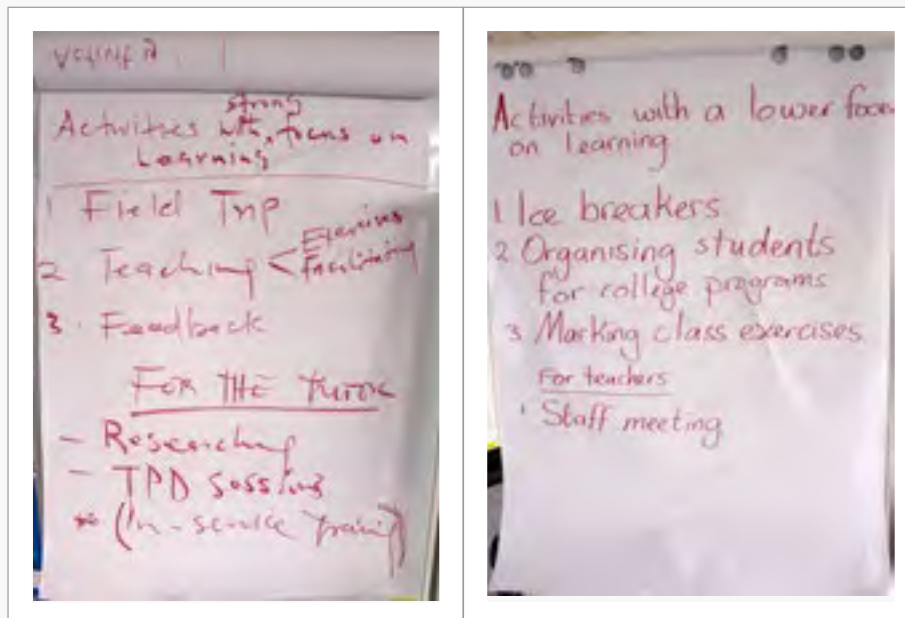 strong
Activities with focus on
Learning
1 Field Trip
2 Teaching < Exercises
Facilitating
3. Feedback
FOR THE TUTOR
- Researching
- TPD sessions
* (In-service training)
Activities with a lower focus
on learning
1 Ice breakers
2 Organising students
for college programs
3 Marking class exercises
For teachers
1 Staff meeting